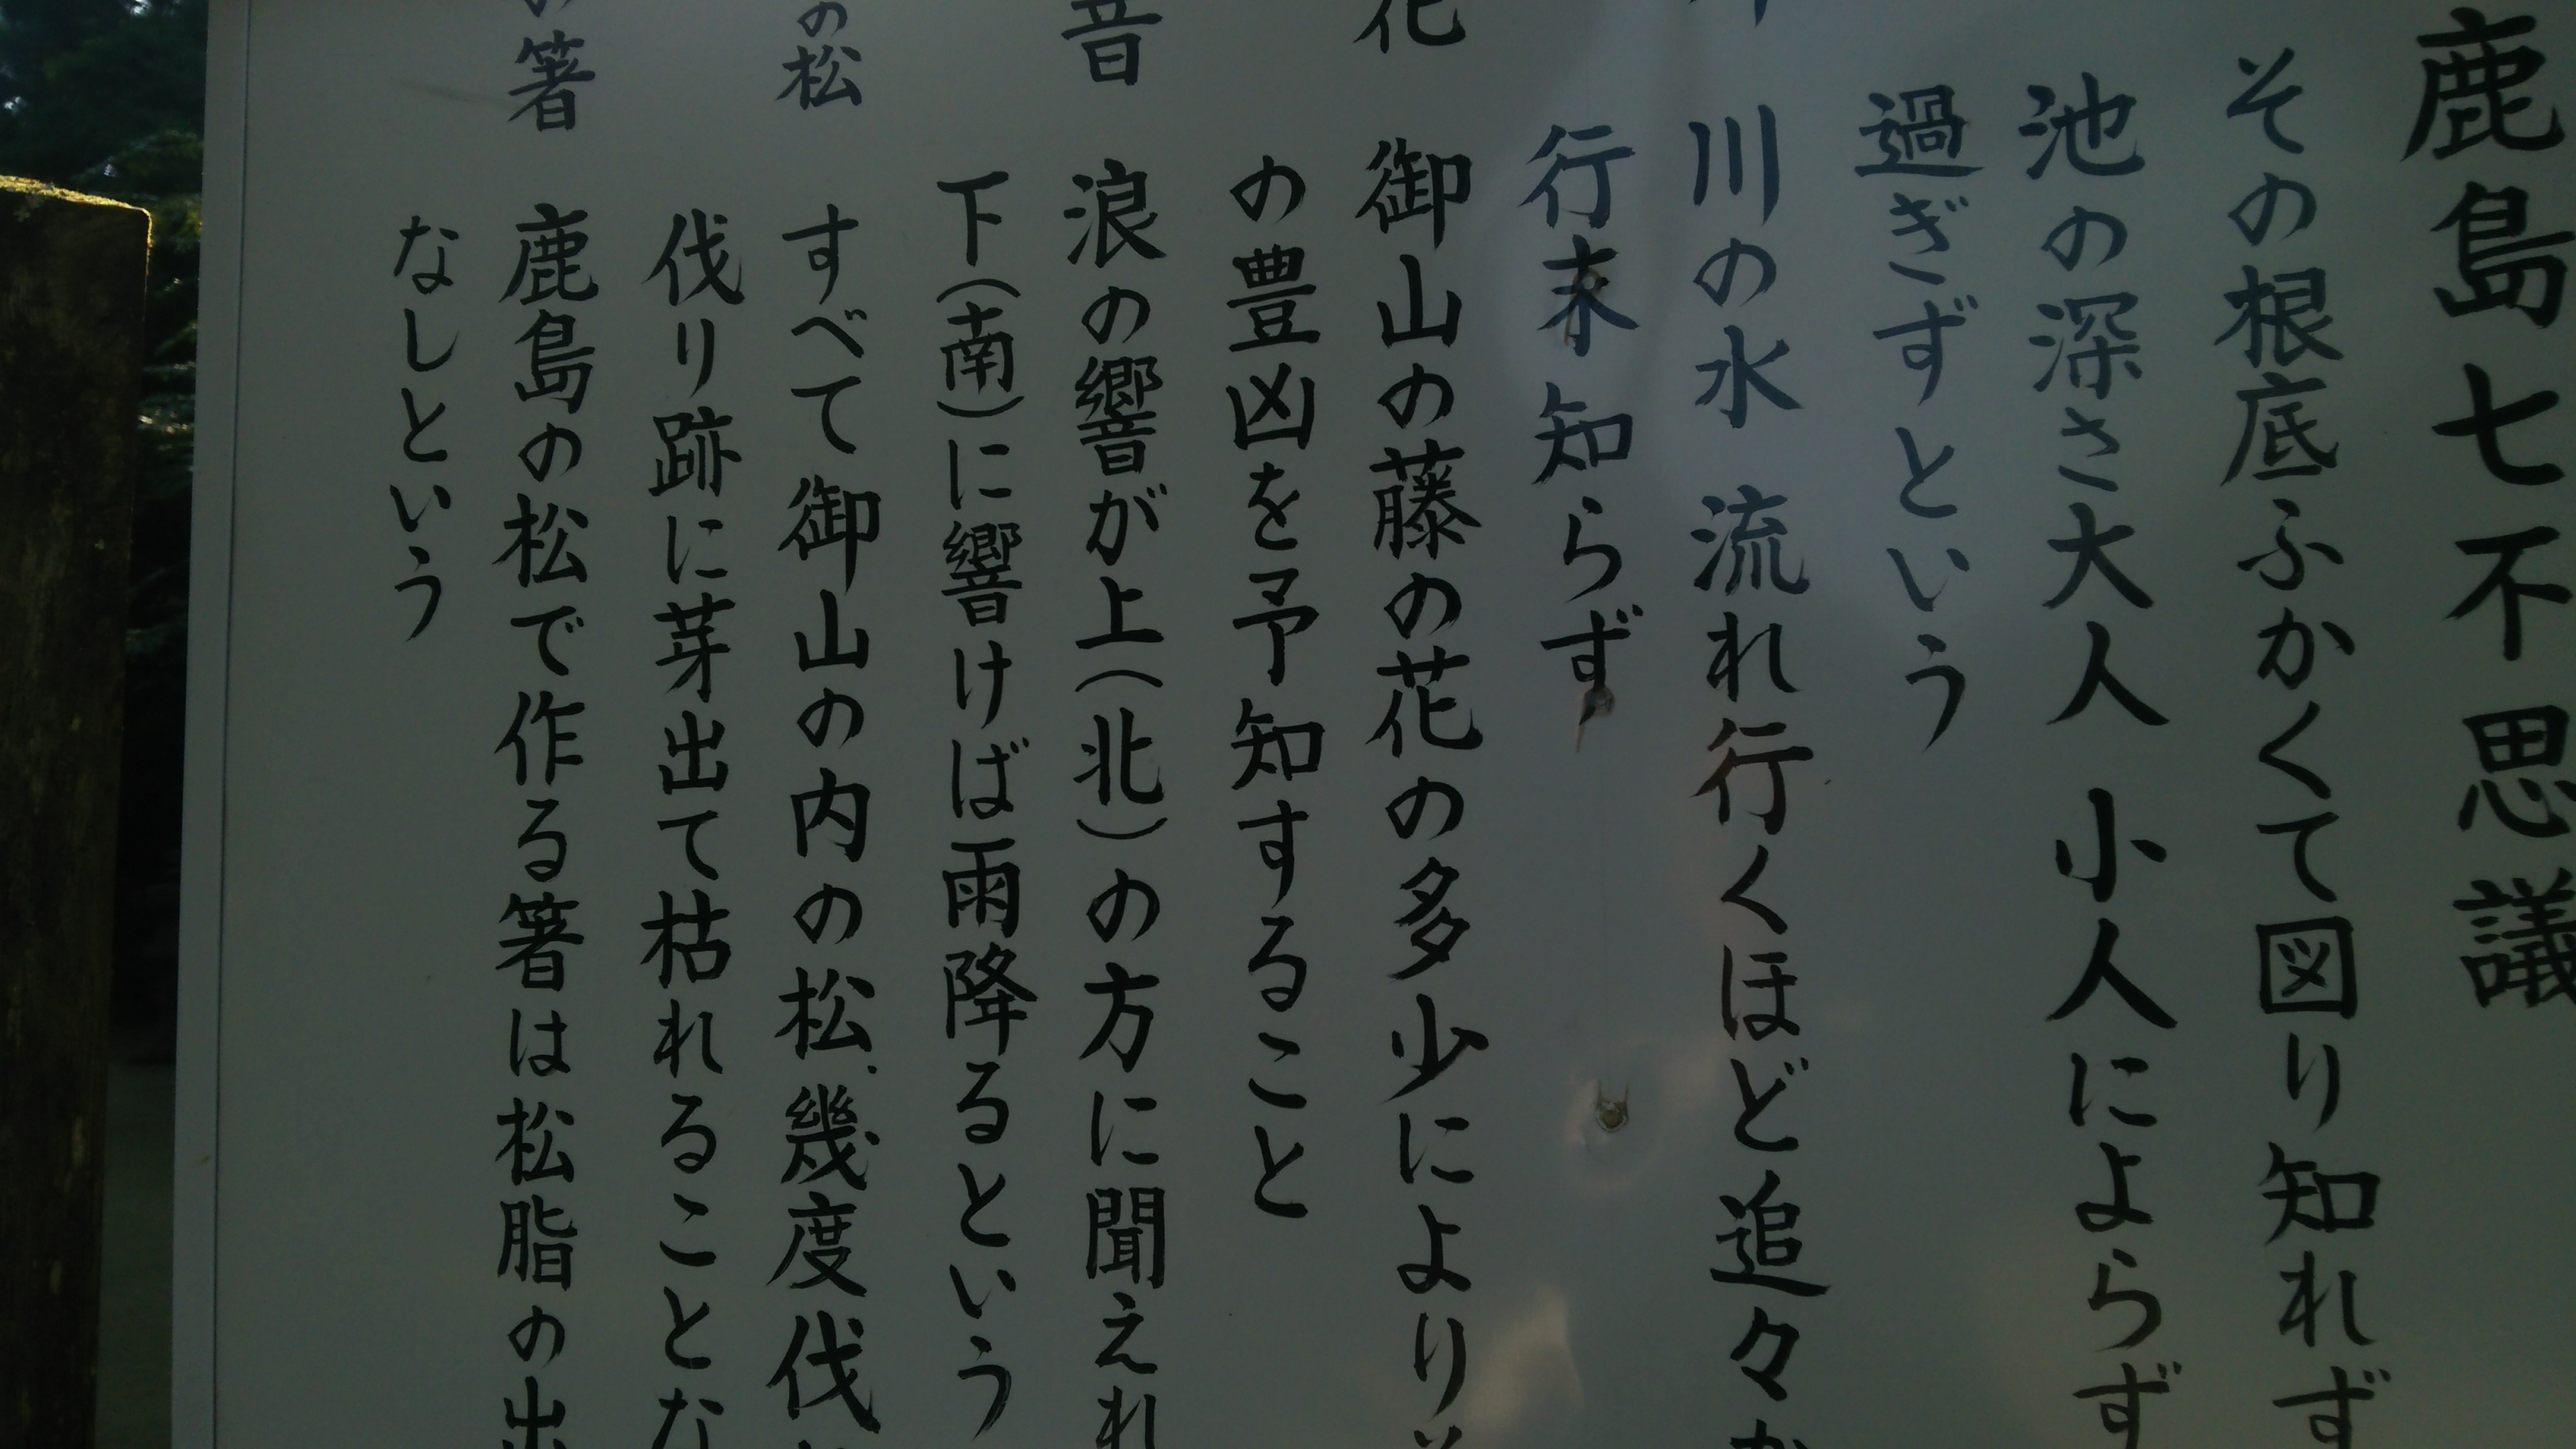 鹿島七不思議
その根底ふかくて図り知れず
池の深さ大人 小人によらず
過ぎずという
川の水 流れ行くほど追々
行末知らず
花 御山の藤の花の多少により
の豊凶を予知すること
音 浪の響が上(北)の方に聞えれ
下(南)に響けば雨降るという
の松 すべて御山の内の松、幾度伐
伐り跡に芽出て枯れることな
の箸 鹿島の松で作る箸は松脂の出
なしという